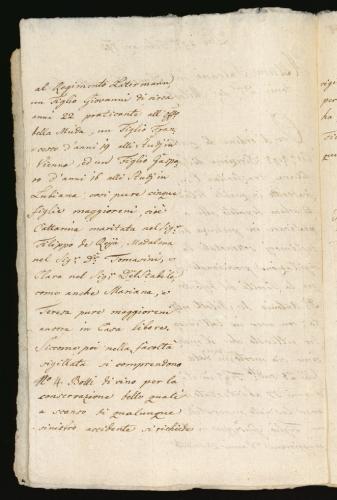 al Regimento Latermann
un Figlio Giovanni di circa
anni 22 praticante all'
della Muda, un Figlio Fran
cesco d'anni 19 alli Studj in
Vienna, ed un Figlio Gaspa
ro d'anni 16 alli Studj in
Lubiana: così pure cinque
figlie maggioreni, cioè
Cattarina maritata nel Sig.r
Filippo de Madalena
nel Sig.r D.r Tomasini, e
Clara nel Sig.r Delstabile,
come anche Mariana, e
Teresa pure maggioreni
ancora in Casa libere.
Siccome poi nella facoltà
sigillata si comprendono
N.o 4. Botti di vino per la
conservazione delle quali
a scanso di qualunque
sinistro accidente si richiede